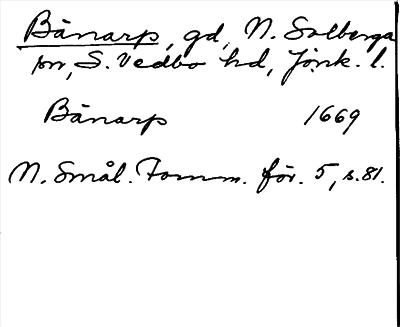 Bänarp, gd, N. Solberga
sn, S. Vedbo hd, Jönk. l.
Bänarp 1669
N. Smål. Fornm. för. 5, s. 81.